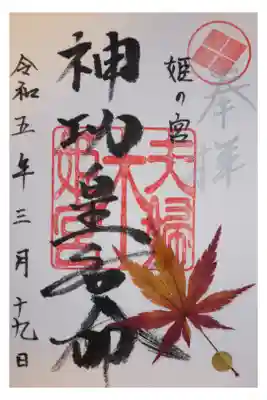 奉拝
姫の宮
夫婦木姫宮
神功皇后命
令和五年三月十九日